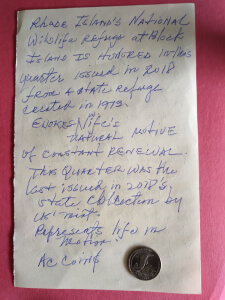 Rhode Island's National
Wildlife Refuge at Block
Island is honored in this
quarter issued in 2018
from a state refuge
created in 1973.
Evokes life's
natural motive
of constant renewal.
This quarter was the
last issued in 2018 &
state collection by
US mint.
Represents life in
motion.
AC Coins